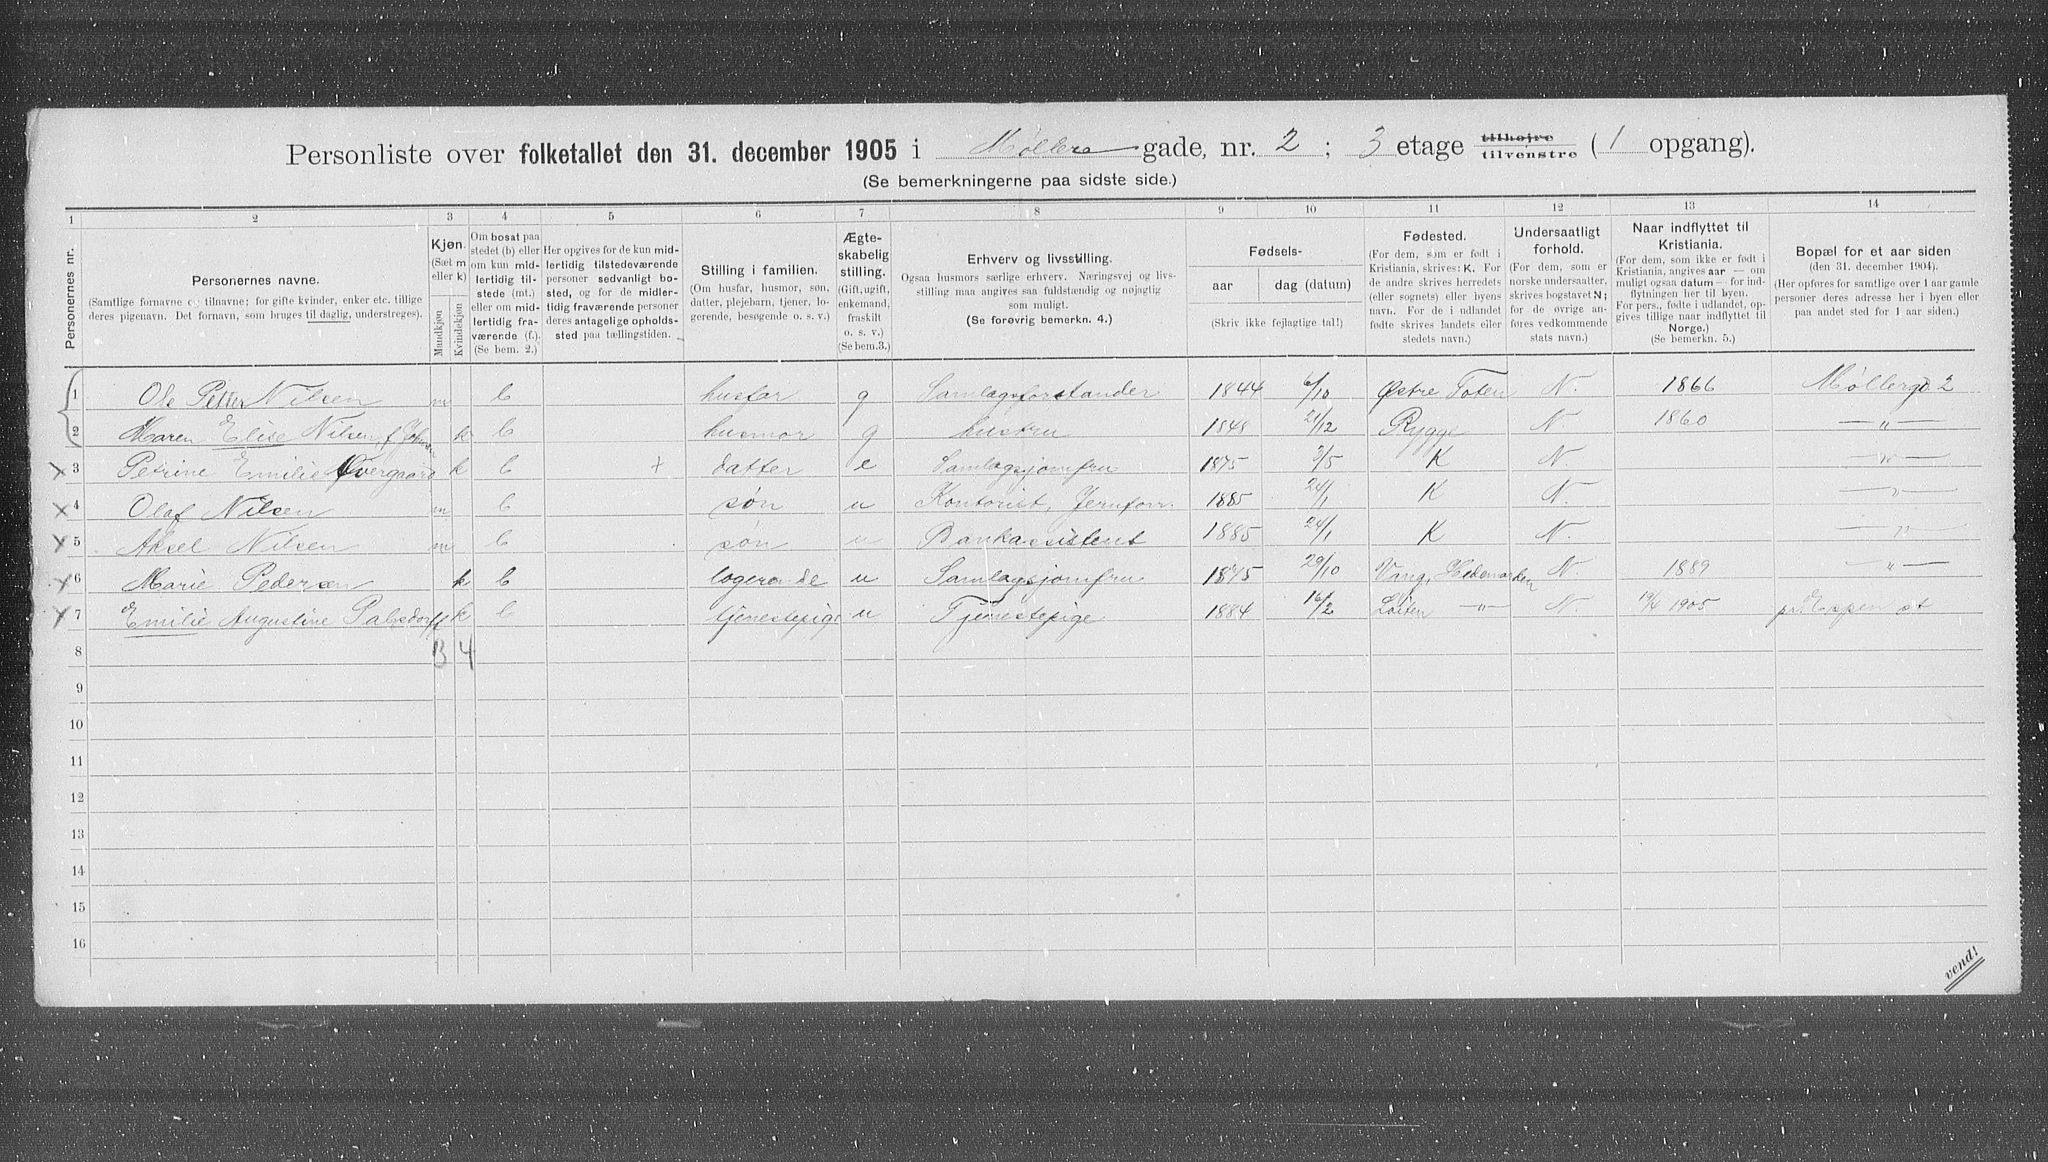 Personliste over folketallet den 31. december 1905 i Møllers gade, nr. 2 ; 3 etage tilhøjre tilvenstre ( 1 opgang).
(Se bemerkningerne paa sidste side.)
1 2 3 4 5 6 7 8 9 10 11 12 13 14
Personernes nr.
Personernes navne.
(Samtlige fornavne og tilnavne; for gifte kvinder, enker etc. tillige
deres pigenavn. Det fornavn, som bruges til daglig, understreges).
Kjøn.
(Sæt m
eller k)
Mandkjøn
Kvindekjøn
Om bosat paa
stedet (b) eller
om kun mid-
lertidig til-
stede (mt.)
eller om mid-
lertidig fra-
værende (f.).
(Se bem. 2.)
Her opgives for de kun mid-
lertidig tilstedeværende
personer sedvanligt bo-
sted, og for de midler-
tidig fraværende personer
deres antagelige opholds-
sted paa tællingstiden.
Stilling i familien.
(Om husfar, husmor, søn,
datter, plejebarn, tjener, lo-
gerende, besøgende o. s. v.)
Ægte-
skabelig
stilling.
(Gift, ugift,
enkemand,
fraskilt
o. s. v.)
(Se bem.3.)
Erhverv og livsstilling.
Ogsaa husmors særlige erhverv. Næringsvej og livs-
stilling maa angives saa fuldstændig og nøjagtig
som muligt.
(Se forøvrig bemerkn. 4.)
Fødsels-
aar
dag (datum)
(Skriv ikke fejlagtige tal!)
Fødested.
(For dem, som er født i
Kristiania, skrives: K. For
de andre skrives herredets
(eller sognets) eller byens
navn. For de i udlandet
fødte skrives landets eller
stedets navn.)
Undersaatligt
forhold.
(For dem, som er
norske undersaatter,
skrives bogstavet N;
for de øvrige an-
føres vedkommende
stats navn.)
Naar indflyttet til
Kristiania.
(For dem, som ikke er født i
Kristiania, angives aar — om
muligt ogsaa datum — for ind-
flytningen her til byen.
For pers., fødte i udlandet, op-
gives tillige naar indflyttet til
Norge.)
(Se bemerkn. 5.)
Bopæl for et aar siden
(den 31. december 1904).
(Her opføres for samtlige over 1 aar gamle
personer deres adresse her i byen eller
paa andet sted for 1 aar siden.)
1 Ole Petter Nilsen m b husfar g Samlagsforstander 1844 6/10 Østre Toten N. 1866 Møllergd 2
2 Maren Elise Nilsen, f. k b husmor g hustru 1848 21/12 Rygge N. 1860 —"—
x 3 Petrine Emilie Overgaard k b + datter e Samlagsjomfru 1875 3/5 K N. —"—
x 4 Olaf Nilsen m b søn u Kontorist, Jernforr. 1885 24/1 K N. —"—
x 5 Aksel Nilsen m b søn u Bankassistent 1885 24/1 K N. —"—
x 6 Marie Pedersen k b logerende u Samlagsjomfru 1875 29/10 Vang, Hedemarken N 1889 —"—
x 7 Emilie Augustine Palsdorff k b tjenestepige u Tjenestepige 1884 16/2 Løiten —"— N. 1905 pr. Espen st
8 3 4
9
10
11
12
13
14
15
16
vend!